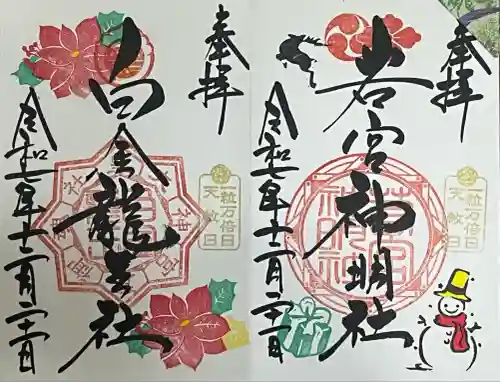 奉拝
若宮神明社
令和七年十二月二十一日
一粒万倍日
天赦日
奉拝
白金龍
社
令和七年十二月二十一日
一粒万倍日
天赦日